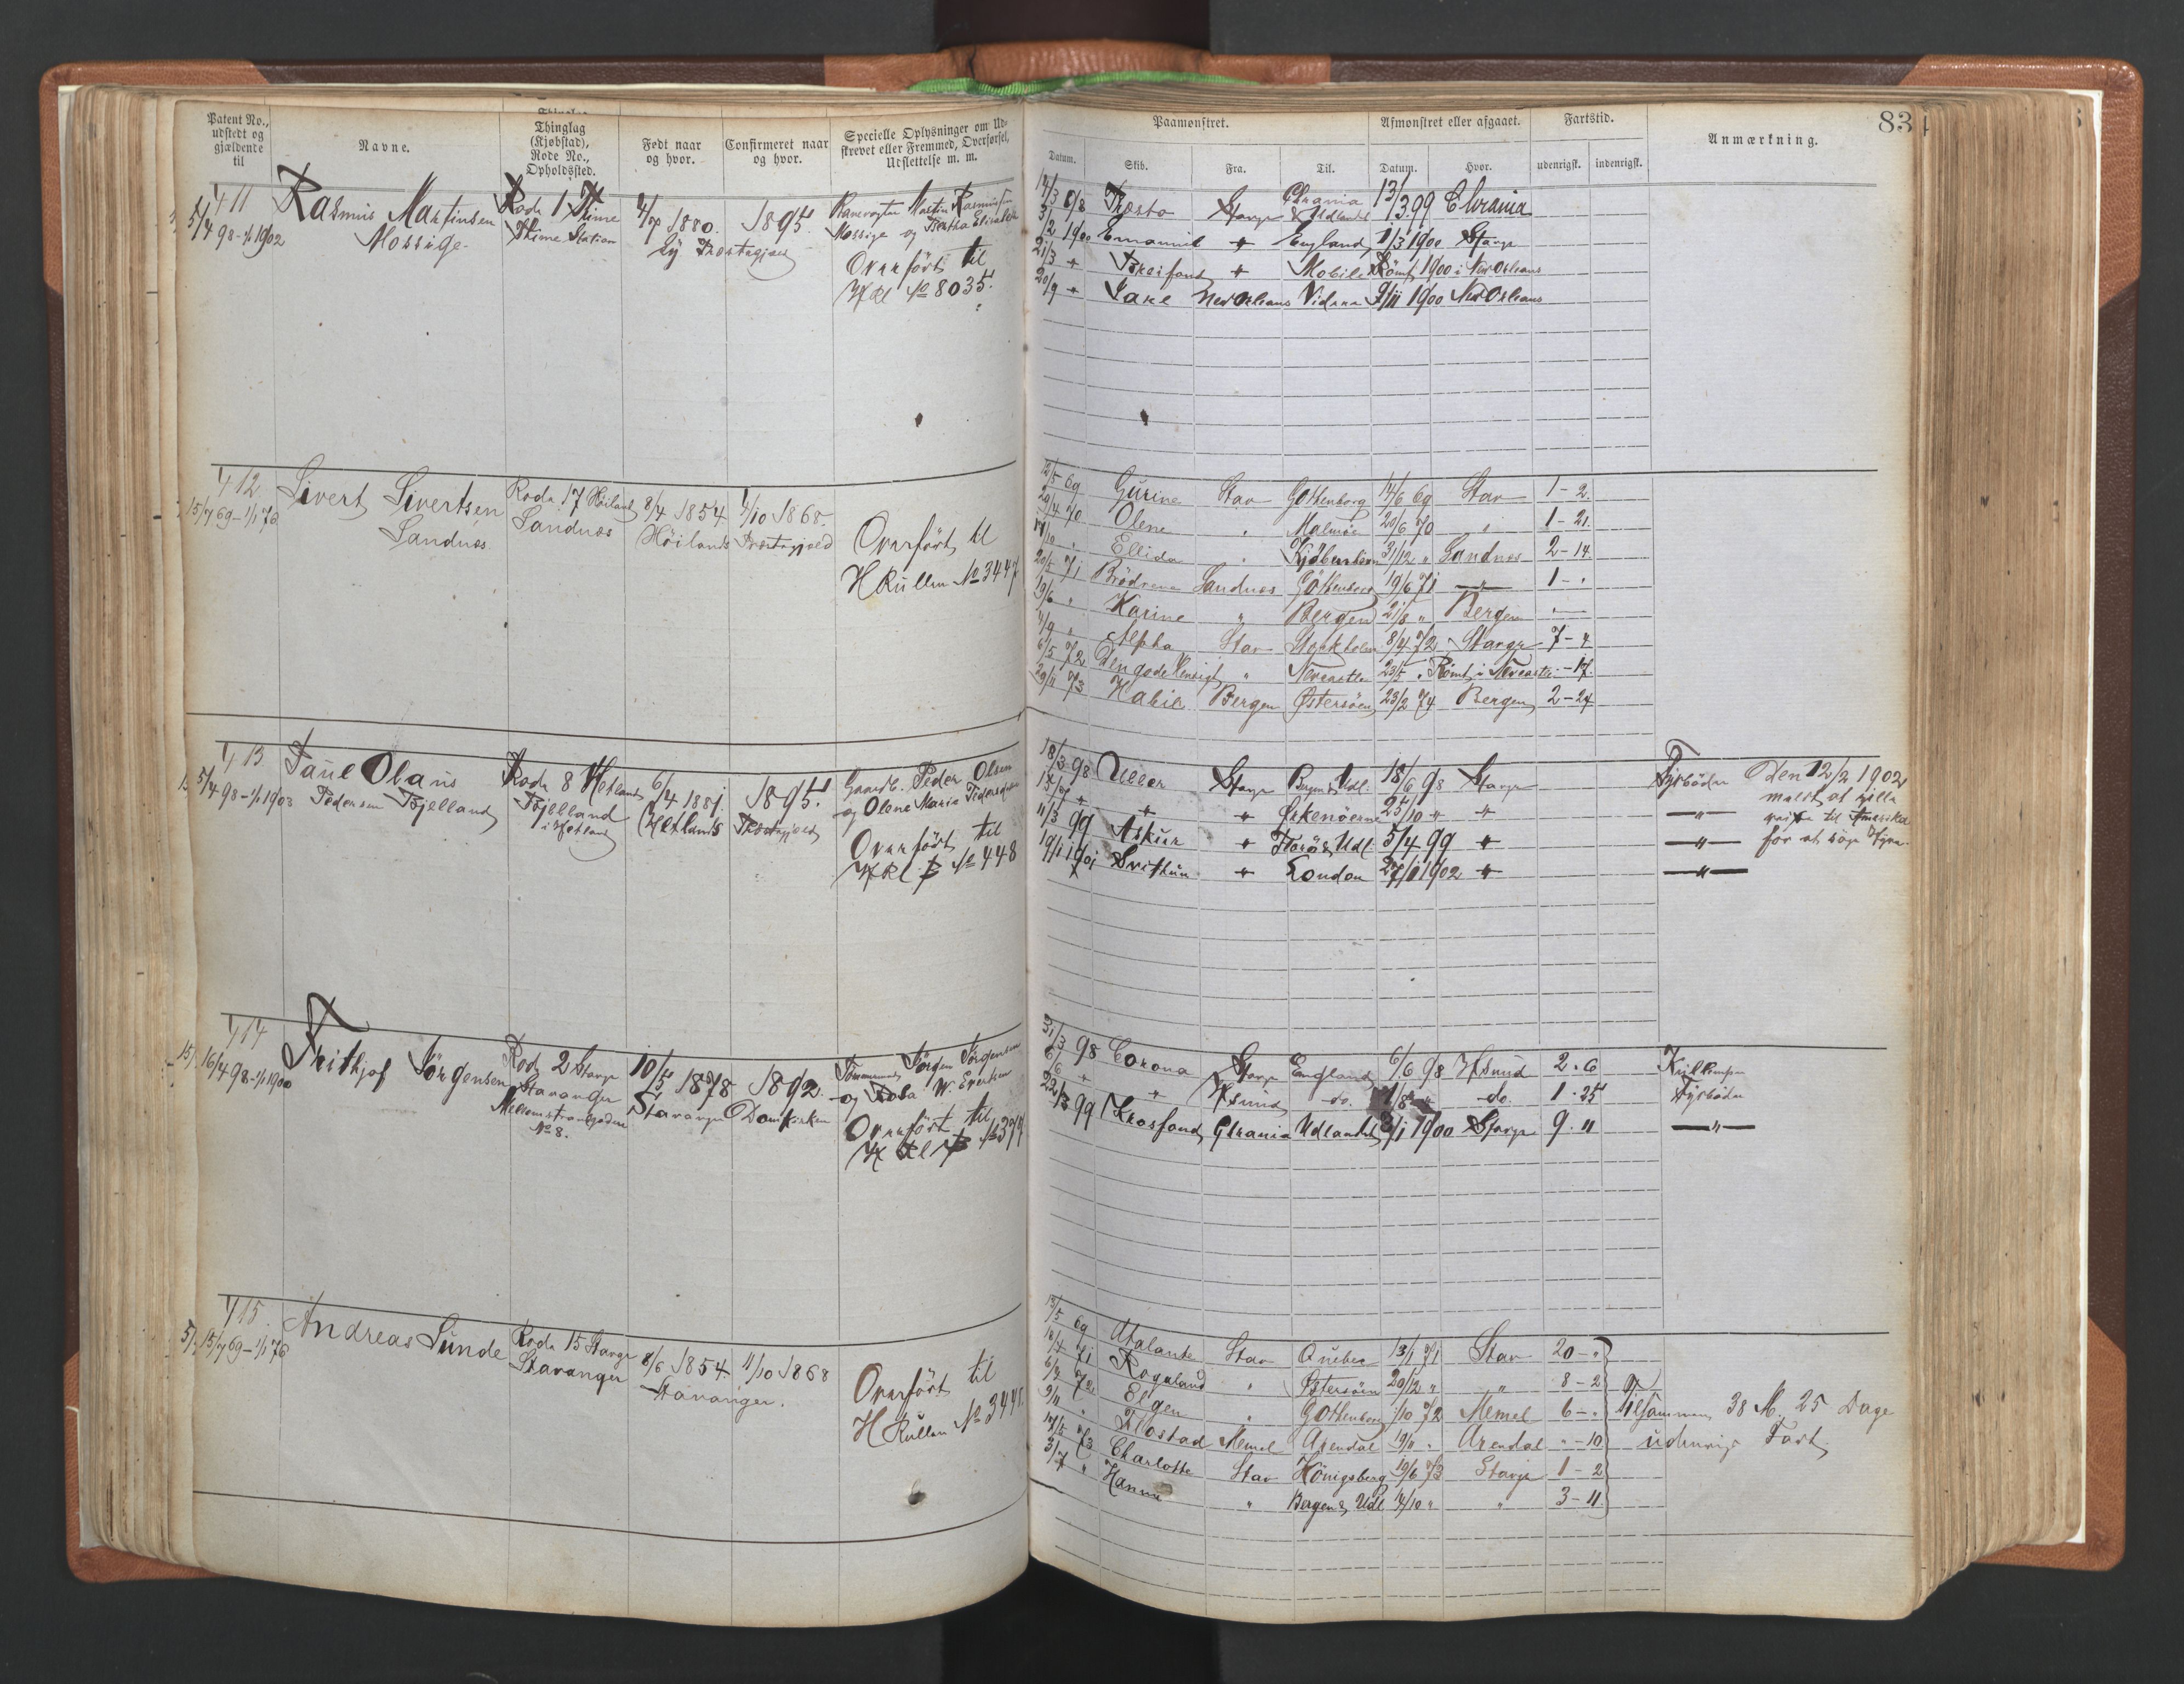 Patent No.,
udstedt og
gjældende
til
Navne.
Thinglag
(Kjøbstad),
Rode No.,
Opholdssted.
Født naar
og hvor.
Confirmeret naar
og hvor.
Specielle Oplysninger om Ud-
skrevet eller Fremmed, Overførsel,
Udslettelse m. m.
Paamønstret.
Afmønstret eller afgaaet.
Fartstid.
Anmærkning.
83
Datum.
Skib.
Fra.
Til.
Datum.
Hvor.
udenrigsk.
indenrigsk.
411
5/4 98 - 1/1 1902
Rasmus Martinsen
Mossige
Rode 1 Thime
Thime Station
1880.
Ly Præstegjeld
1895.
Banevogter Martin Rasmussen
Mossige og Bertha Elisabeth
Overført til
H Rl No 8035.
14/3 98 Præsto Stavgr Chrania & Udlandet 13/3 99 Chrania
3/2 1900 Emanuel " England 11/3 1900 Stavgr
21/3 " Breifond " Mobile Römt 1900 i New Orleans
20/9 " Jane New Orleans 9/11 1900 New Orleans
412
15/7 69 - 1/1 76
Sivert Sivertsen
Sandnæs
Rode 17 Höiland
Sandnæs
8/4 1854
Höilands
4/10 1868.
Præstegjeld
Overført til
H Rullen No 3447
12/5 69 Gurine Stav Gottenborg 14/6 69 Stav 1 - 2
29/4 70 Olene " Malmöe 20/6 70 " 1 - 21.
17/10 " Ellida " Kjöbenhavn 31/12 " Sandnæs 2 - 14
20/5 71 Brödrene Sandnæs Göttenborg 19/6 71 — " — 1 - "
19/6 " Karine " Bergen 21/8 " Bergen
Alpha Stav Stockholm 8/4 72 Stavgr 7 - 4
6/5 72 Den gode Hensigt " Newcastle 23/5 " Römt i Newcastle - 17.
29/11 73 Habil Bergen Østersöen 23/2 74 Bergen 2 - 24
413
5/4 98 - 1/1 1903
Paul Olaus
Pedersen Bjelland
Rode 8 Hetland
Bjelland
i Hetland
6/4 1881.
Hetlands
1895.
Præstegjeld
Gaardb. Peder Olsen
og Olene Maria Pedersdatter
Overført til
H Rl B No 448
18/3 98 Uller Stavgr Bergen & Udl. 18/6 98 Stavgr Fyrböder
" " Örkenöerne 25/10 " "
11/3 99 Askur " Florö & Udl. 5/4 99 "
19/11 1901 Svithun " London 27/1 1902 "
Den 12/2 1902
meldt at ville
reise til Amerika
for at söge Hyre.
414
16/4 98 - 1/1 1900
Frithjof Jörgensen
Rode 2 Stavgr
Stavanger
No 8.
10/5 1878
Stavanger
1892.
Domkirken
Tömmermand Jörgen Jörgensen
og W. Evertsen
Overført til
H Rl B No 394
31/3 98 Corona Stavgr England 6/6 98 Hfsund 2 - 6 Kullemper
6/6 " " Hfsund do. 1/8 " do. 1 - 25 Fyrböder
22/3 99 Krosfond Chrania Udlandet 3/1 1900 Stavgr 9 - 11 — " —
415
15/7 69 - 1/1 76
Andreas Sunde
Rode 15 Stavgr
Stavanger
8/6 1854.
Stavanger.
11/10 1868
Overført til
H Rullen No 3448.
13/5 69 Atalante Stav Quebec 13/1 71 Stav 20 - "
18/4 71 Rogaland " Østersöen 20/12 " " 8 - 2
72 Elgen " Gottenborg 1/10 72 Memel 6 - "
9/11 " Flostad Memel Arendal 19/11 " Arendal " - 10
73 Charlotte Stav Königsberg 19/6 73 Stavgr 1 - 2
3/7 " Hanna " Bergen & Udl 14/10 " " 3 - 11
Tilsammen 38 M. 25 Dage
udenrigs Fart